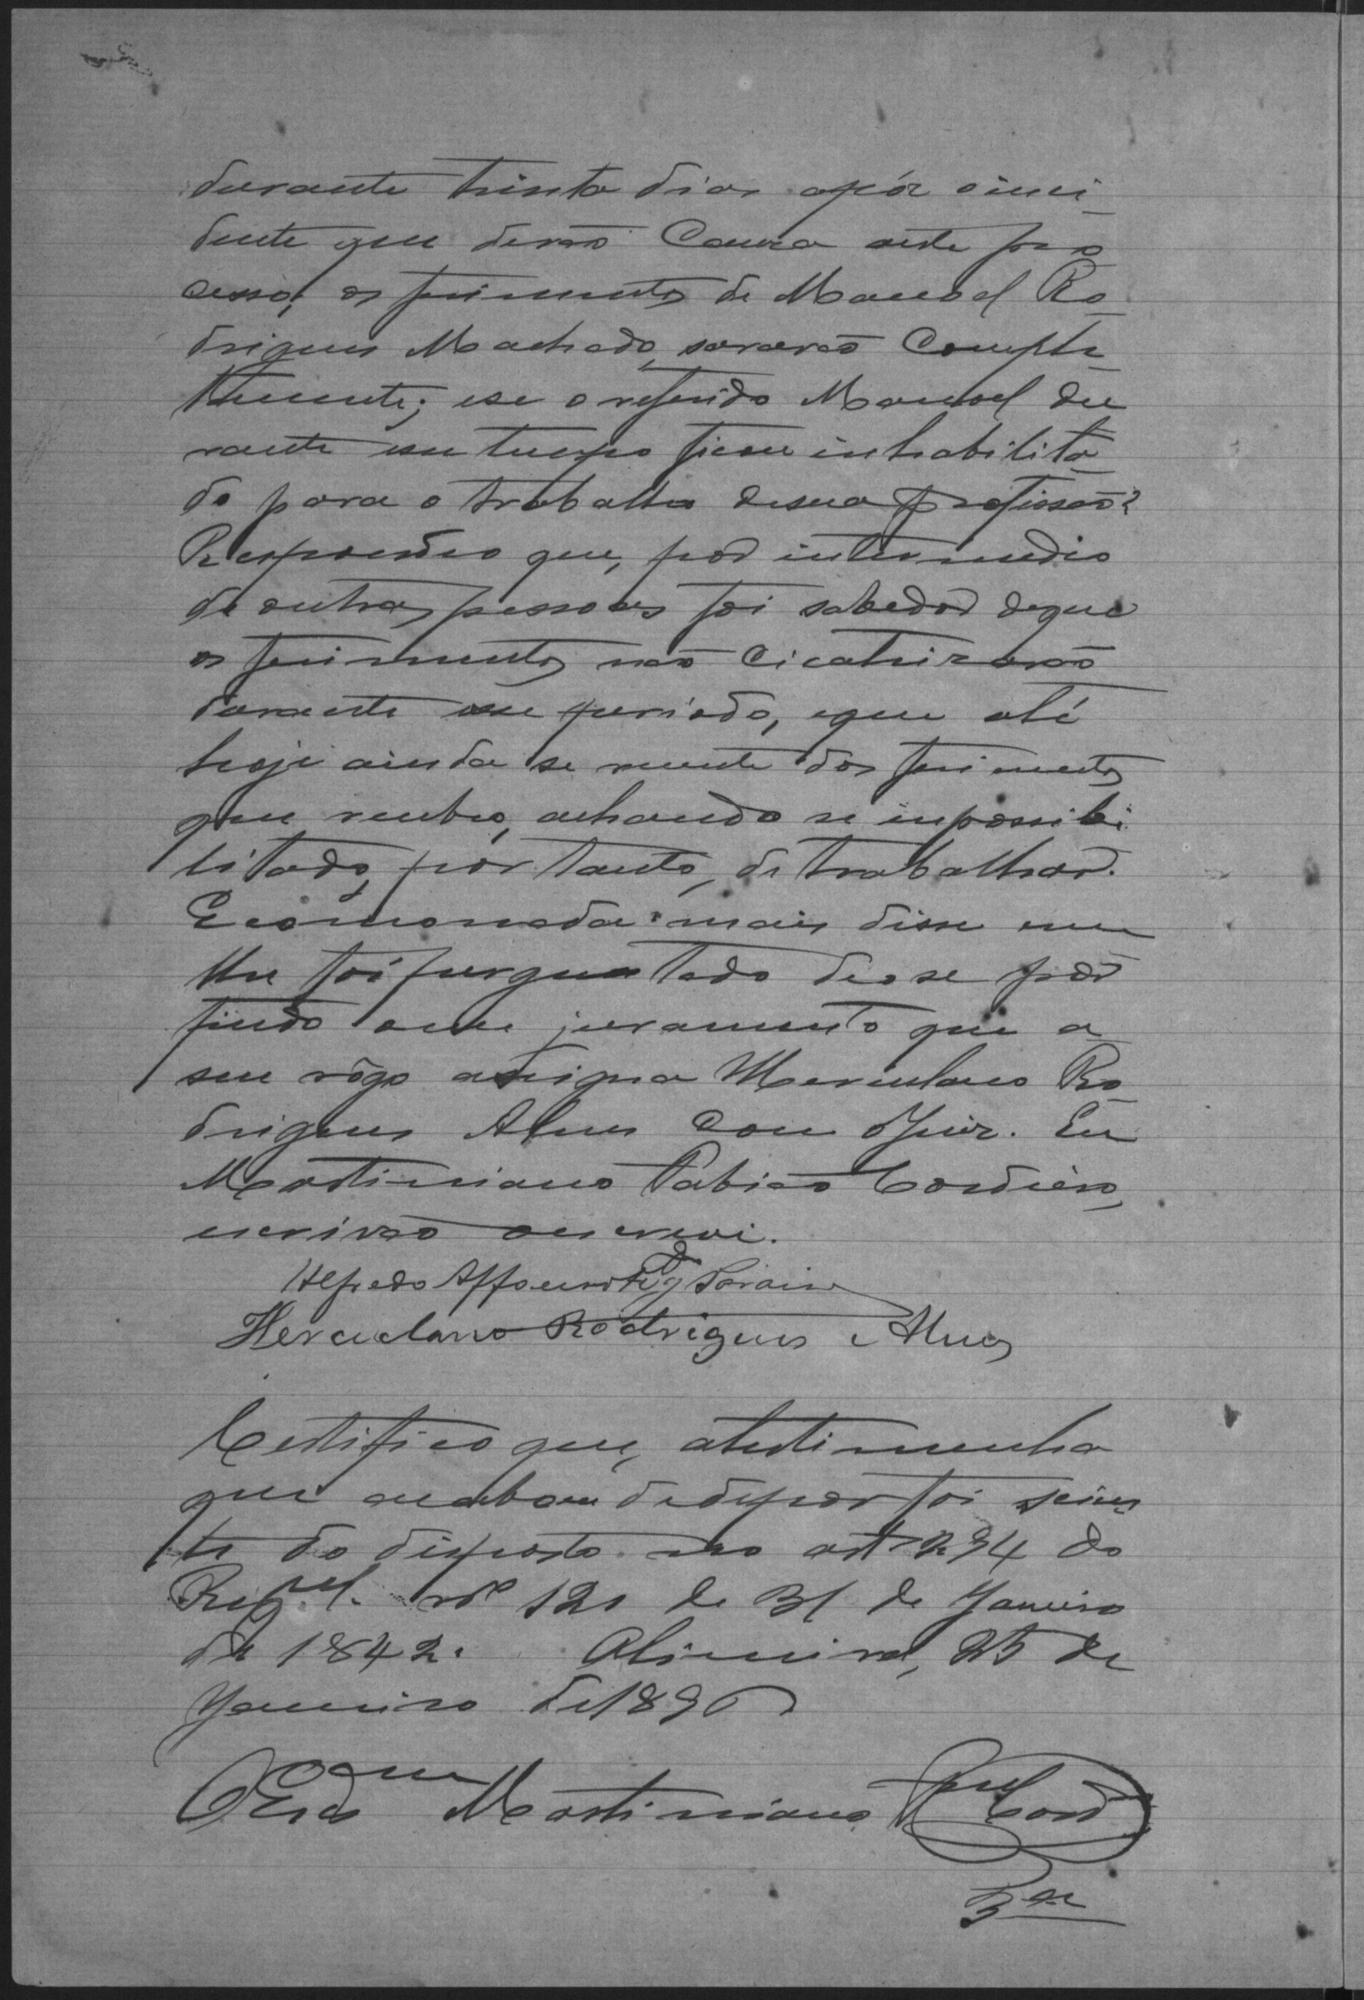 durante trinta dias após o inci-
dente que derão Causa este pro-
cesso, os ferimentos de Manoel Ro-
drigues Machado, sararão Comple-
tamente; e se o referido Manoel du
rante esse tempo ficou inhabilita-
do para o trabalho de sua profissão?
Respondeo que, por intermedio
de outras pessoas foi sabedor de que
os ferimentos não Cicatrizarão
durante esse periodo, e que até
hoje ainda se resente dos ferimentos
que recebeo, achando se impossibi-
litado, por tanto, de trabalhar.
E como nada mais disse nem
lhe foi perguntado deo se por
findo este juramento que a
seu rôgo assigna Herculano Ro-
drigues Alves Com o Juiz. Eu
Martiniano Cordeiro,
escrivão o escrevi.
Alfredo Affonso
Herculano Rodrigues Alves
Certifico que, a testimunha
que acabou de depor foi scien-
te do disposto no art 294 do
Reg.ul. nº 120 de 31 de Janeiro
de 1842. 25 de
Janeiro de 1890
O Escr.am Martiniano Cord